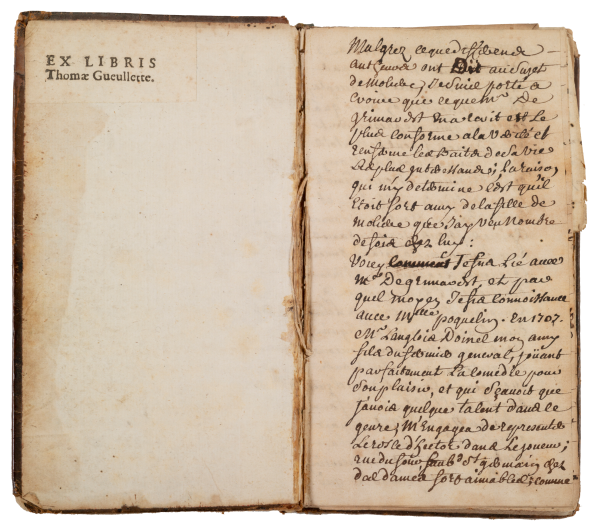 EX LIBRIS
Thomæ Gueullette.
Malgrez ceque differends
autheurs ont Dit au Sujet
de moliere, Je suis porté a
croire que ceque mr De
grimarest en a ecrit est Le
plus conforme a la verité et
renferme les traits de sa vie
Les plus interessans; La raison
qui m'y determine c'est qu'il
etoit fort amy de la fille de
moliere que J'ay veu nombre
de fois chez luy:
voicy comment Je fus Lié avec
Mr De grimarest, et par
quel moyen Je fis connoissance
avec Melle poquelin. En 1707.
Mr Langlois Doinel mon amy
fils du fermier general, joüant
parfaitement La comedie pour
son plaisir, et qui sçavoit que
j'avois quelque talent dans le
genre; M'Engagea de representer
Le rosle d'hector dans Le joueur;
rue du four faubg St germain chez
des dames fort aimables; comme